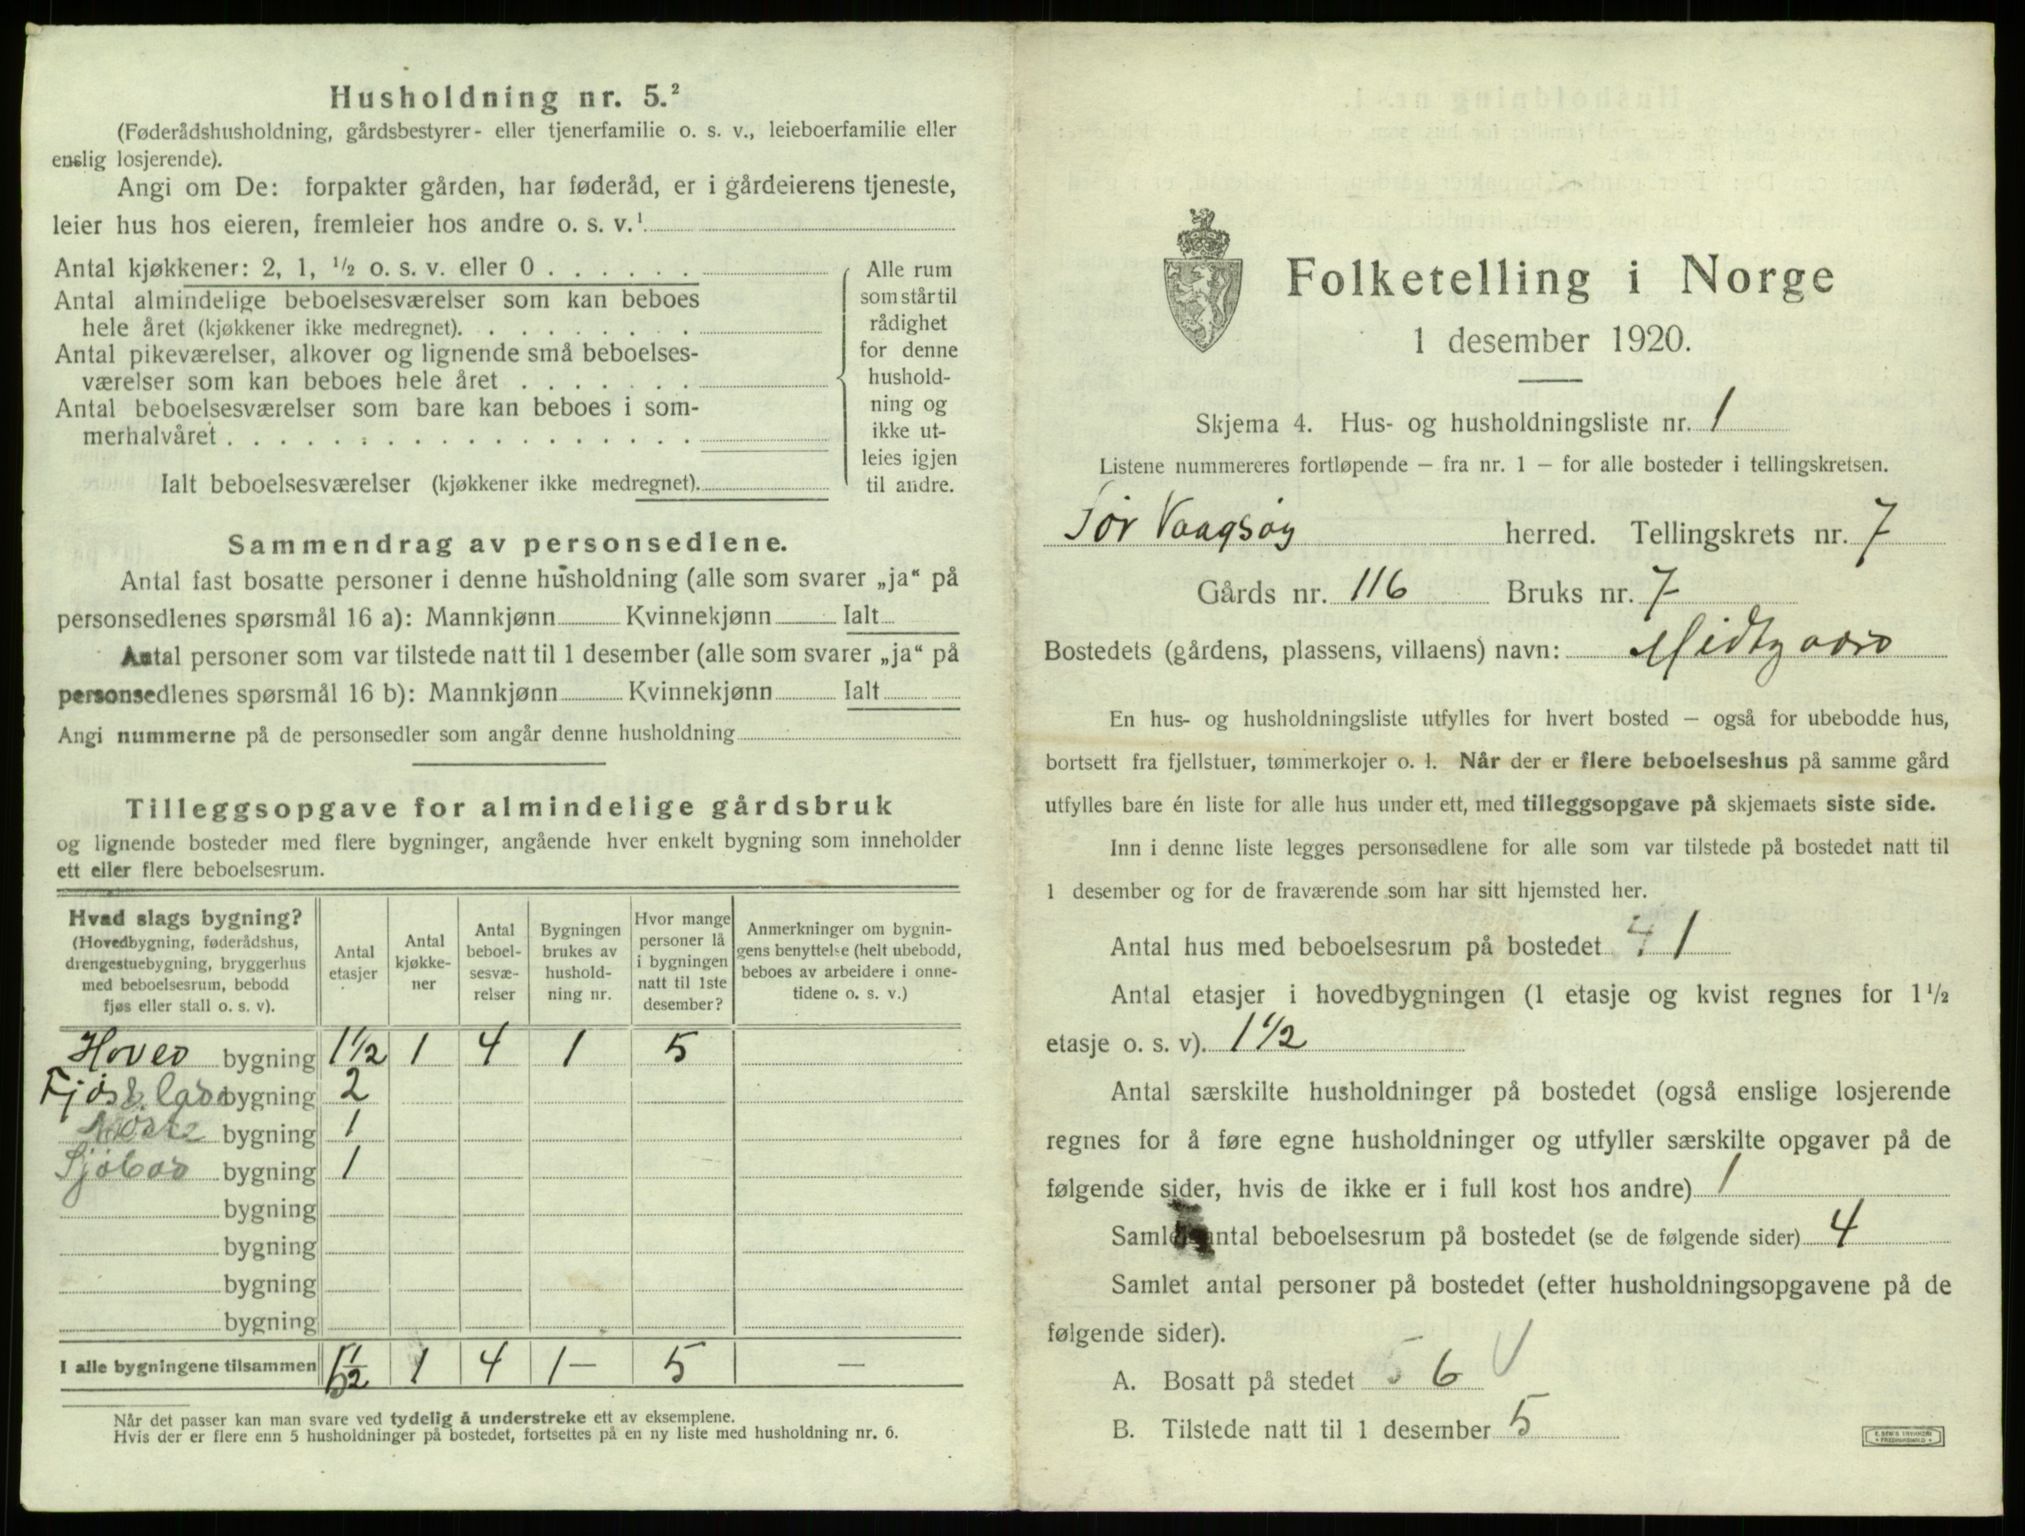 Husholdning nr. 5.²
(Føderådshusholdning, gårdsbestyrer- eller tjenerfamilie o. s. v., leieboerfamilie eller
enslig losjerende).
Angi om De: forpakter gården, har føderåd, er i gårdeierens tjeneste,
leier hus hos eieren, fremleier hos andre o. s. v.¹
Antal kjøkkener: 2, 1, ½ o. s. v. eller 0
Antal almindelige beboelsesværelser som kan beboes
hele året (kjøkkener ikke medregnet).
Antal pikeværelser, alkover og lignende små beboelses-
værelser som kan beboes hele året
Antal beboelsesværelser som bare kan beboes i som-
merhalvåret
Ialt beboelsesværelser (kjøkkener ikke medregnet).
Alle rum
som står til
rådighet
for denne
hushold-
ning og
ikke ut-
leies igjen
til andre.
Sammendrag av personsedlene.
Antal fast bosatte personer i denne husholdning (alle som svarer „ja“ på
personsedlenes spørsmål 16 a): Mannkjønn Kvinnekjønn Ialt
Antal personer som var tilstede natt til 1 desember (alle som svarer „ja“ på
personsedlenes spørsmål 16 b): Mannkjønn Kvinnekjønn Ialt
Angi nummerne på de personsedler som angår denne husholdning
Tilleggsopgave for almindelige gårdsbruk
og lignende bosteder med flere bygninger, angående hver enkelt bygning som inneholder
ett eller flere beboelsesrum.
Hvad slags bygning?
(Hovedbygning, føderådshus,
drengestuebygning, bryggerhus
med beboelsesrum, bebodd
fjøs eller stall o. s. v).
Antal
etasjer
Antal
kjøkke-
ner
Antal
beboel-
sesvæ-
relser
Bygningen
brukes av
hushold-
ning nr.
Hvor mange
personer lå
i bygningen
natt til 1ste
desember?
Anmerkninger om bygnin-
gens benyttelse (helt ubebodd,
beboes av arbeidere i onne-
tidene o. s. v.)
Hoved bygning 1½ 1 4 1 5
Fjøs bygning 2
bygning 1
Sjøbod bygning 1
bygning
bygning
bygning
bygning
I alle bygningene tilsammen 5½ 1 4 1 — 5 —
Når det passer kan man svare ved tydelig å understreke ett av eksemplene.
Hvis der er flere enn 5 husholdninger på bostedet, fortsettes på en ny liste med husholdning nr. 6.
Folketelling i Norge
1 desember 1920.
Skjema 4. Hus- og husholdningsliste nr. 1
Listene nummereres fortløpende – fra nr. 1 – for alle bosteder i tellingskretsen.
Sør Vaagsøy herred. Tellingskrets nr. 7
Gårds nr. 116 Bruks nr. 7
Bostedets (gårdens, plassens, villaens) navn: Midtgaard
En hus- og husholdningsliste utfylles for hvert bosted – også for ubebodde hus,
bortsett fra fjellstuer, tømmerkojer o. l. Når der er flere beboelseshus på samme gård
utfylles bare én liste for alle hus under ett, med tilleggsopgave på skjemaets siste side.
Inn i denne liste legges personsedlene for alle som var tilstede på bostedet natt til
1 desember og for de fraværende som har sitt hjemsted her.
Antal hus med beboelsesrum på bostedet 4 1
Antal etasjer i hovedbygningen (1 etasje og kvist regnes for 1½
etasje o. s. v). 1½
Antal særskilte husholdninger på bostedet (også enslige losjerende
regnes for å føre egne husholdninger og utfyller særskilte opgaver på de
følgende sider, hvis de ikke er i full kost hos andre) 1
Samlet antal beboelsesrum på bostedet (se de følgende sider) 4
Samlet antal personer på bostedet (efter husholdningsopgavene på de
følgende sider).
A. Bosatt på stedet 5 6 V
B. Tilstede natt til 1 desember 5